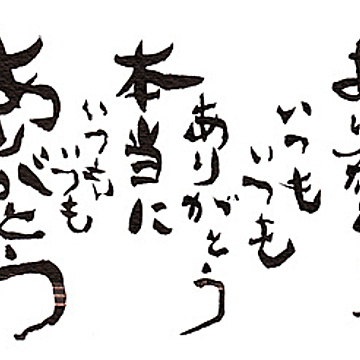 ありがとう
いつも
いつも
ありがとう
本当に
いつも
いつも
ありがとう